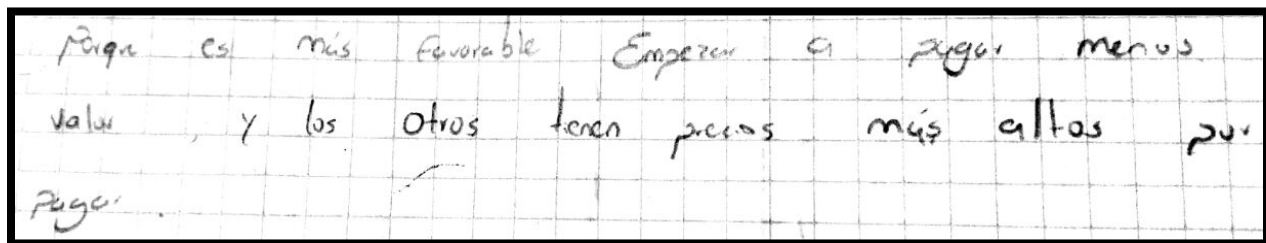 Porque es más favorable Empezar a pagar menos
valor, y los otros tienen precios más altos por
pagar.